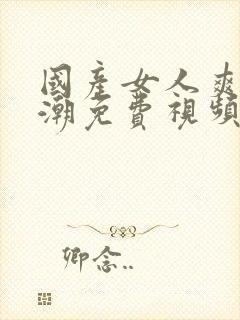 國產女人爽
潮免費視頻
卿念..